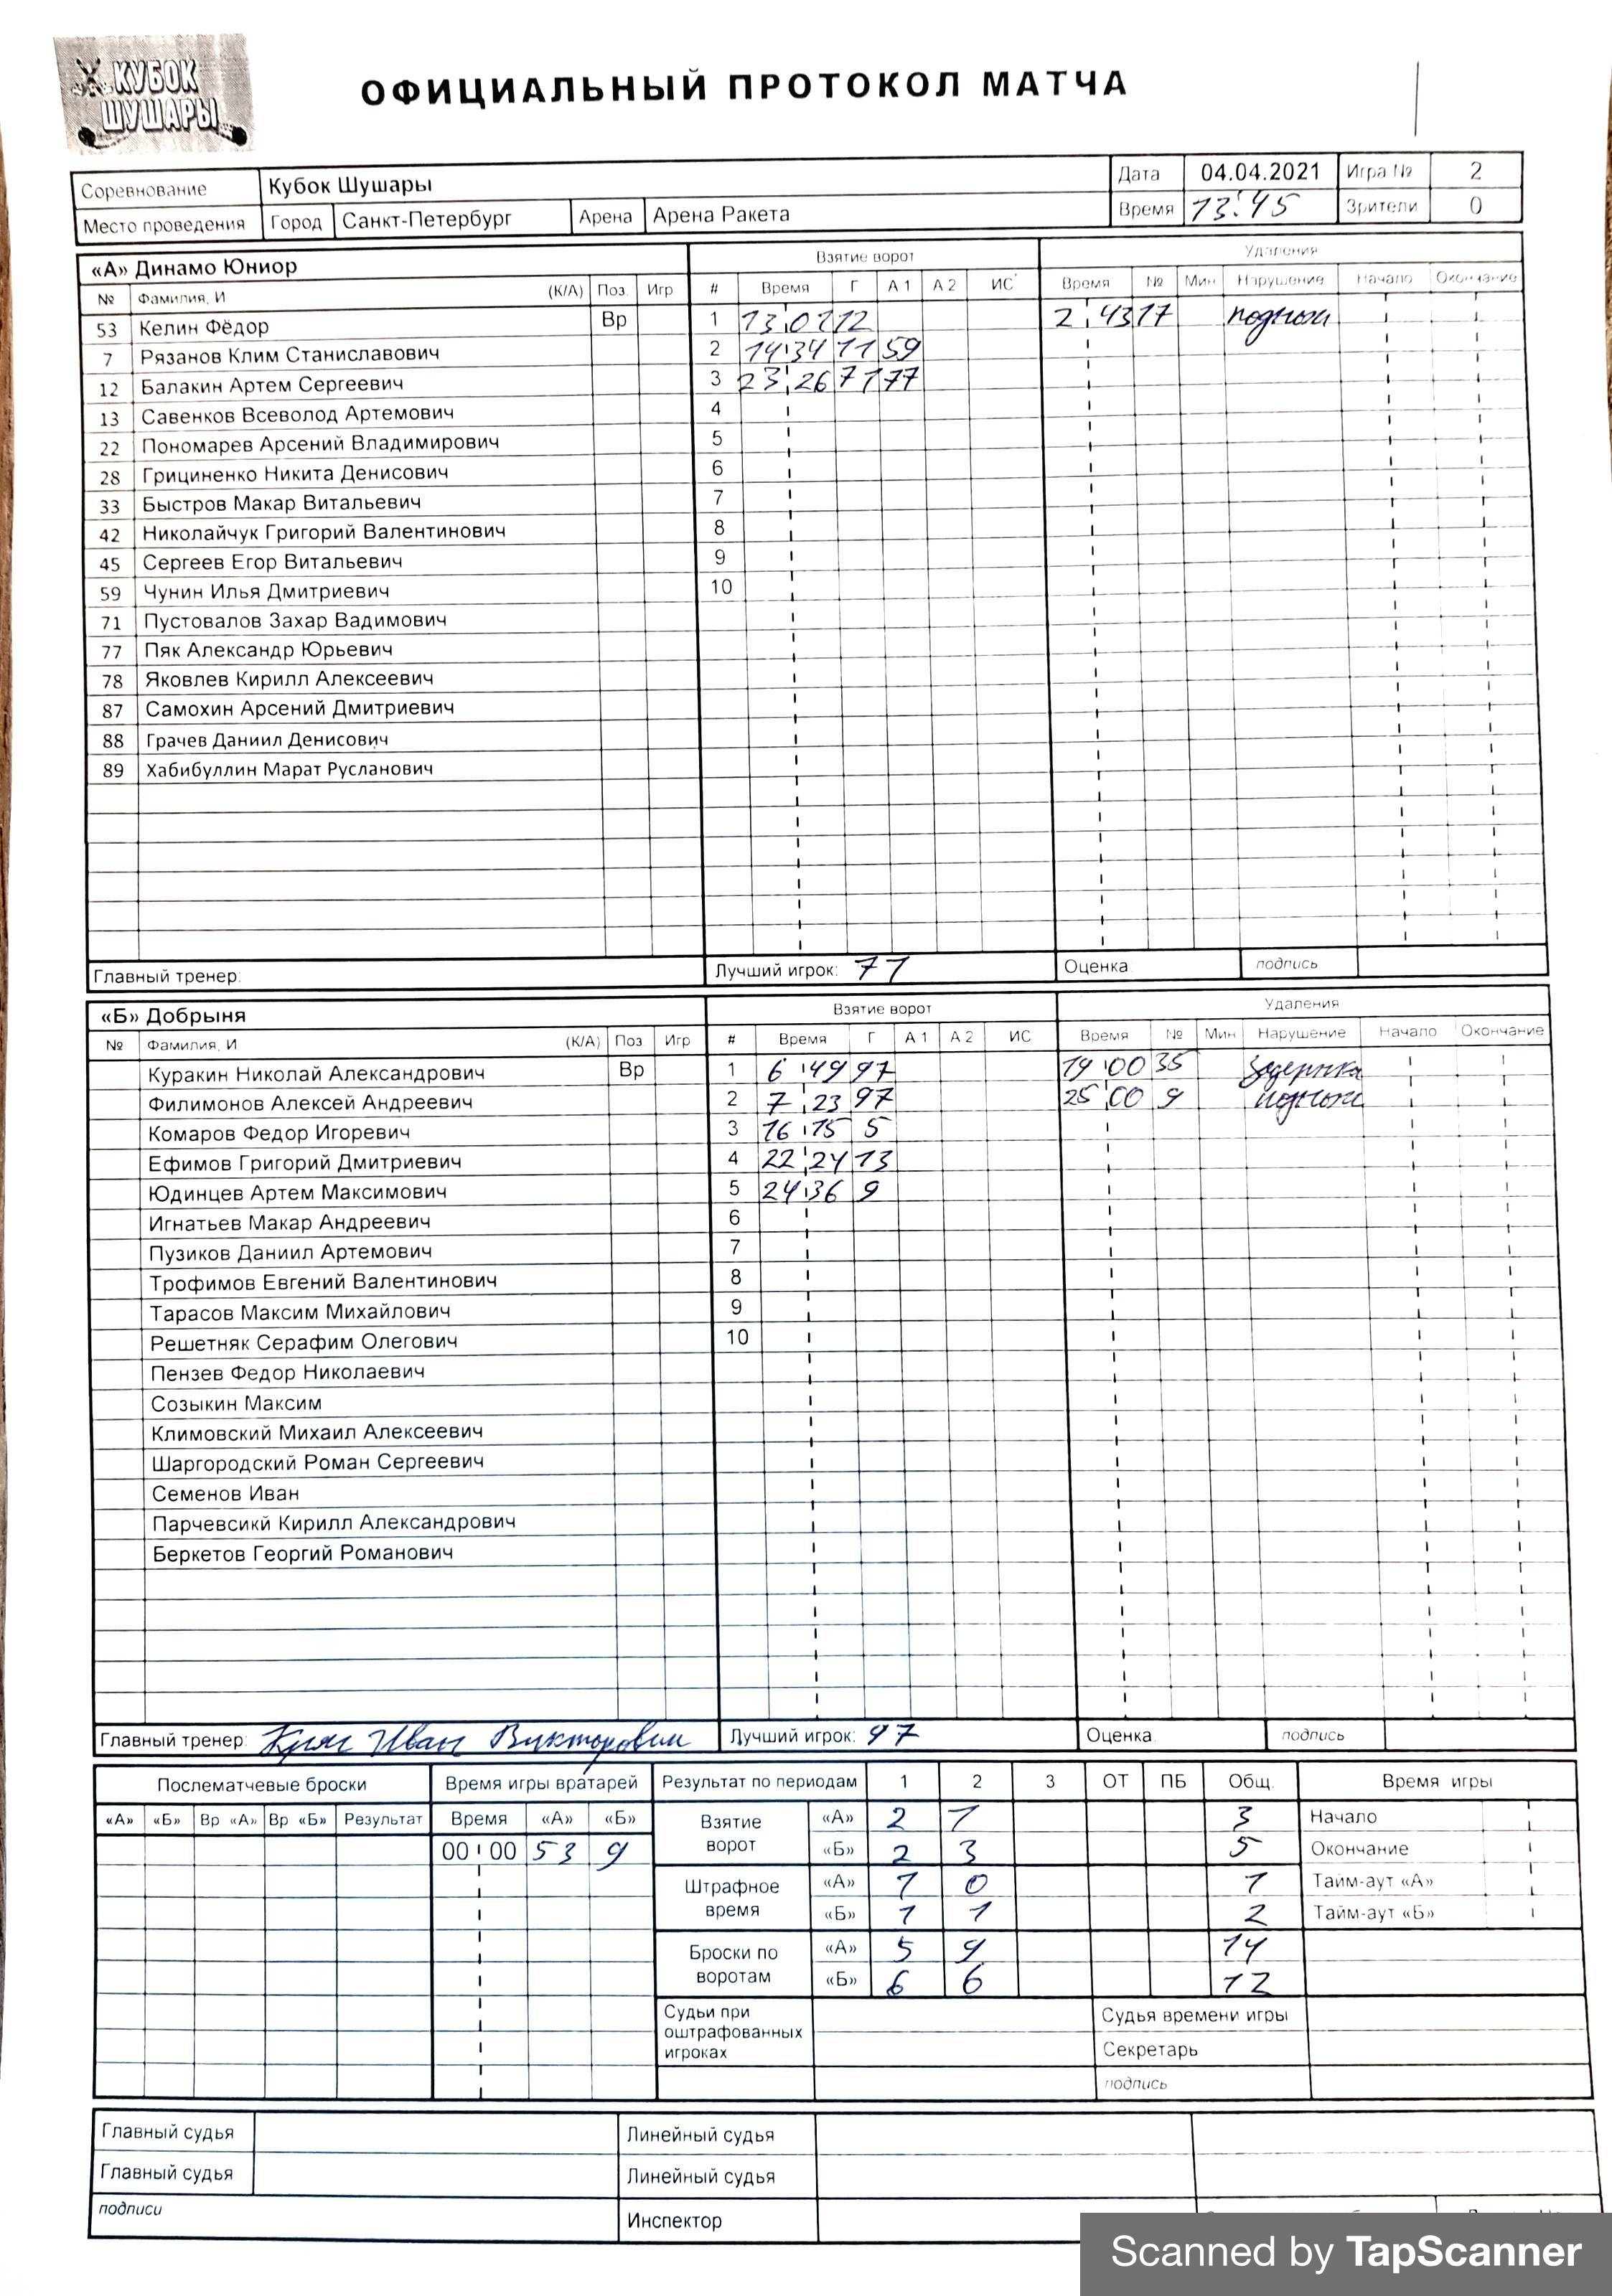 КУБОК
ШУШАРЫ
ОФИЦИАЛЬНЫЙ ПРОТОКОЛ МАТЧА
Соревнование Кубок Шушары Дата 04.04.2021 Игра № 2
Место проведения Город Санкт-Петербург Арена Арена Ракета Время 13:45 Зрители 0
«А» Динамо Юниор Взятие ворот Удаления
№ Фамилия, И (К/А) Поз. Игр # Время Г А 1 А 2 ИС Время № Мин Нарушение Начало Окончание
53 Келин Фёдор Вр 1 13 01 12 2 43 17 подножк
7 Рязанов Клим Станиславович 2 14 34 11 59
12 Балакин Артем Сергеевич 3 23 26 71 77
13 Савенков Всеволод Артемович 4
22 Пономарев Арсений Владимирович 5
28 Грициненко Никита Денисович 6
33 Быстров Макар Витальевич 7
42 Николайчук Григорий Валентинович 8
45 Сергеев Егор Витальевич 9
59 Чунин Илья Дмитриевич 10
71 Пустовалов Захар Вадимович
77 Пяк Александр Юрьевич
78 Яковлев Кирилл Алексеевич
87 Самохин Арсений Дмитриевич
88 Грачев Даниил Денисович
89 Хабибуллин Марат Русланович
Главный тренер: Лучший игрок: 71 Оценка подпись
«Б» Добрыня Взятие ворот Удаления
№ Фамилия, И (К/А) Поз Игр # Время Г А 1 А 2 ИС Время № Мин Нарушение Начало Окончание
Куракин Николай Александрович Вр 1 6 49 97 19 00 35 Задержка
Филимонов Алексей Андреевич 2 7 23 97 25 00 9
Комаров Федор Игоревич 3 16 15 5
Ефимов Григорий Дмитриевич 4 22 24 13
Юдинцев Артем Максимович 5 24 36 9
Игнатьев Макар Андреевич 6
Пузиков Даниил Артемович 7
Трофимов Евгений Валентинович 8
Тарасов Максим Михайлович 9
Решетняк Серафим Олегович 10
Пензев Федор Николаевич
Созыкин Максим
Климовский Михаил Алексеевич
Шаргородский Роман Сергеевич
Семенов Иван
Парчевсикй Кирилл Александрович
Беркетов Георгий Романович
Главный тренер: Иван Викторович Лучший игрок: 97 Оценка подпись
Послематчевые броски Время игры вратарей Результат по периодам 1 2 3 ОТ ПБ Общ. Время игры
«А» «Б» Вр «А» Вр «Б» Результат Время «А» «Б» Взятие ворот «А» 2 1 3 Начало
00 00 53 9 «Б» 2 3 5 Окончание
Штрафное время «А» 1 0 1 Тайм-аут «А»
«Б» 1 1 2 Тайм-аут «Б»
Броски по воротам «А» 5 9 14
«Б» 6 6 12
Судьи при оштрафованных игроках Судья времени игры
Секретарь
подпись
Главный судья Линейный судья
Главный судья Линейный судья
подписи
Инспектор
Scanned by TapScanner